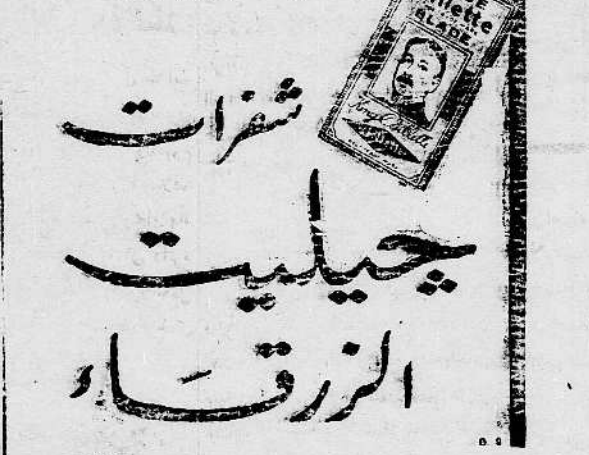 Gillette
BLADE
شفرات
چيليت
الزرقاء